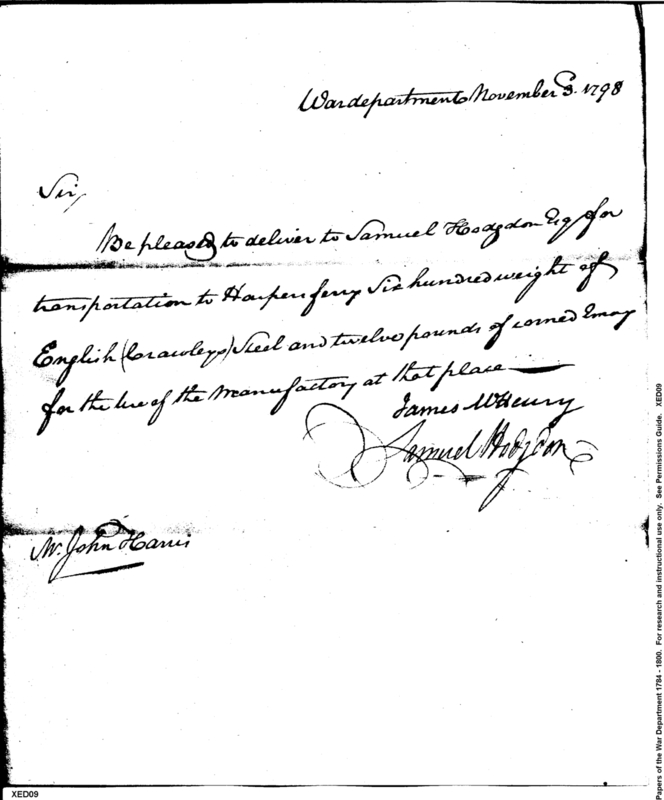 War department November 3. 1798
Sir,
Be pleased to deliver to Samuel Hodgdon Esq for
transportation to Harpers ferry Six hundred weight of
English (Crawleys) Steel and twelve pounds of corned Emay
for the Use of the Manufactory at that place
James McHenry
Samuel Hodgdon
Mr. John Harris
XED09
Papers of the War Department 1784 - 1800. For research and instructional use only. See Permissions Guide. XED09